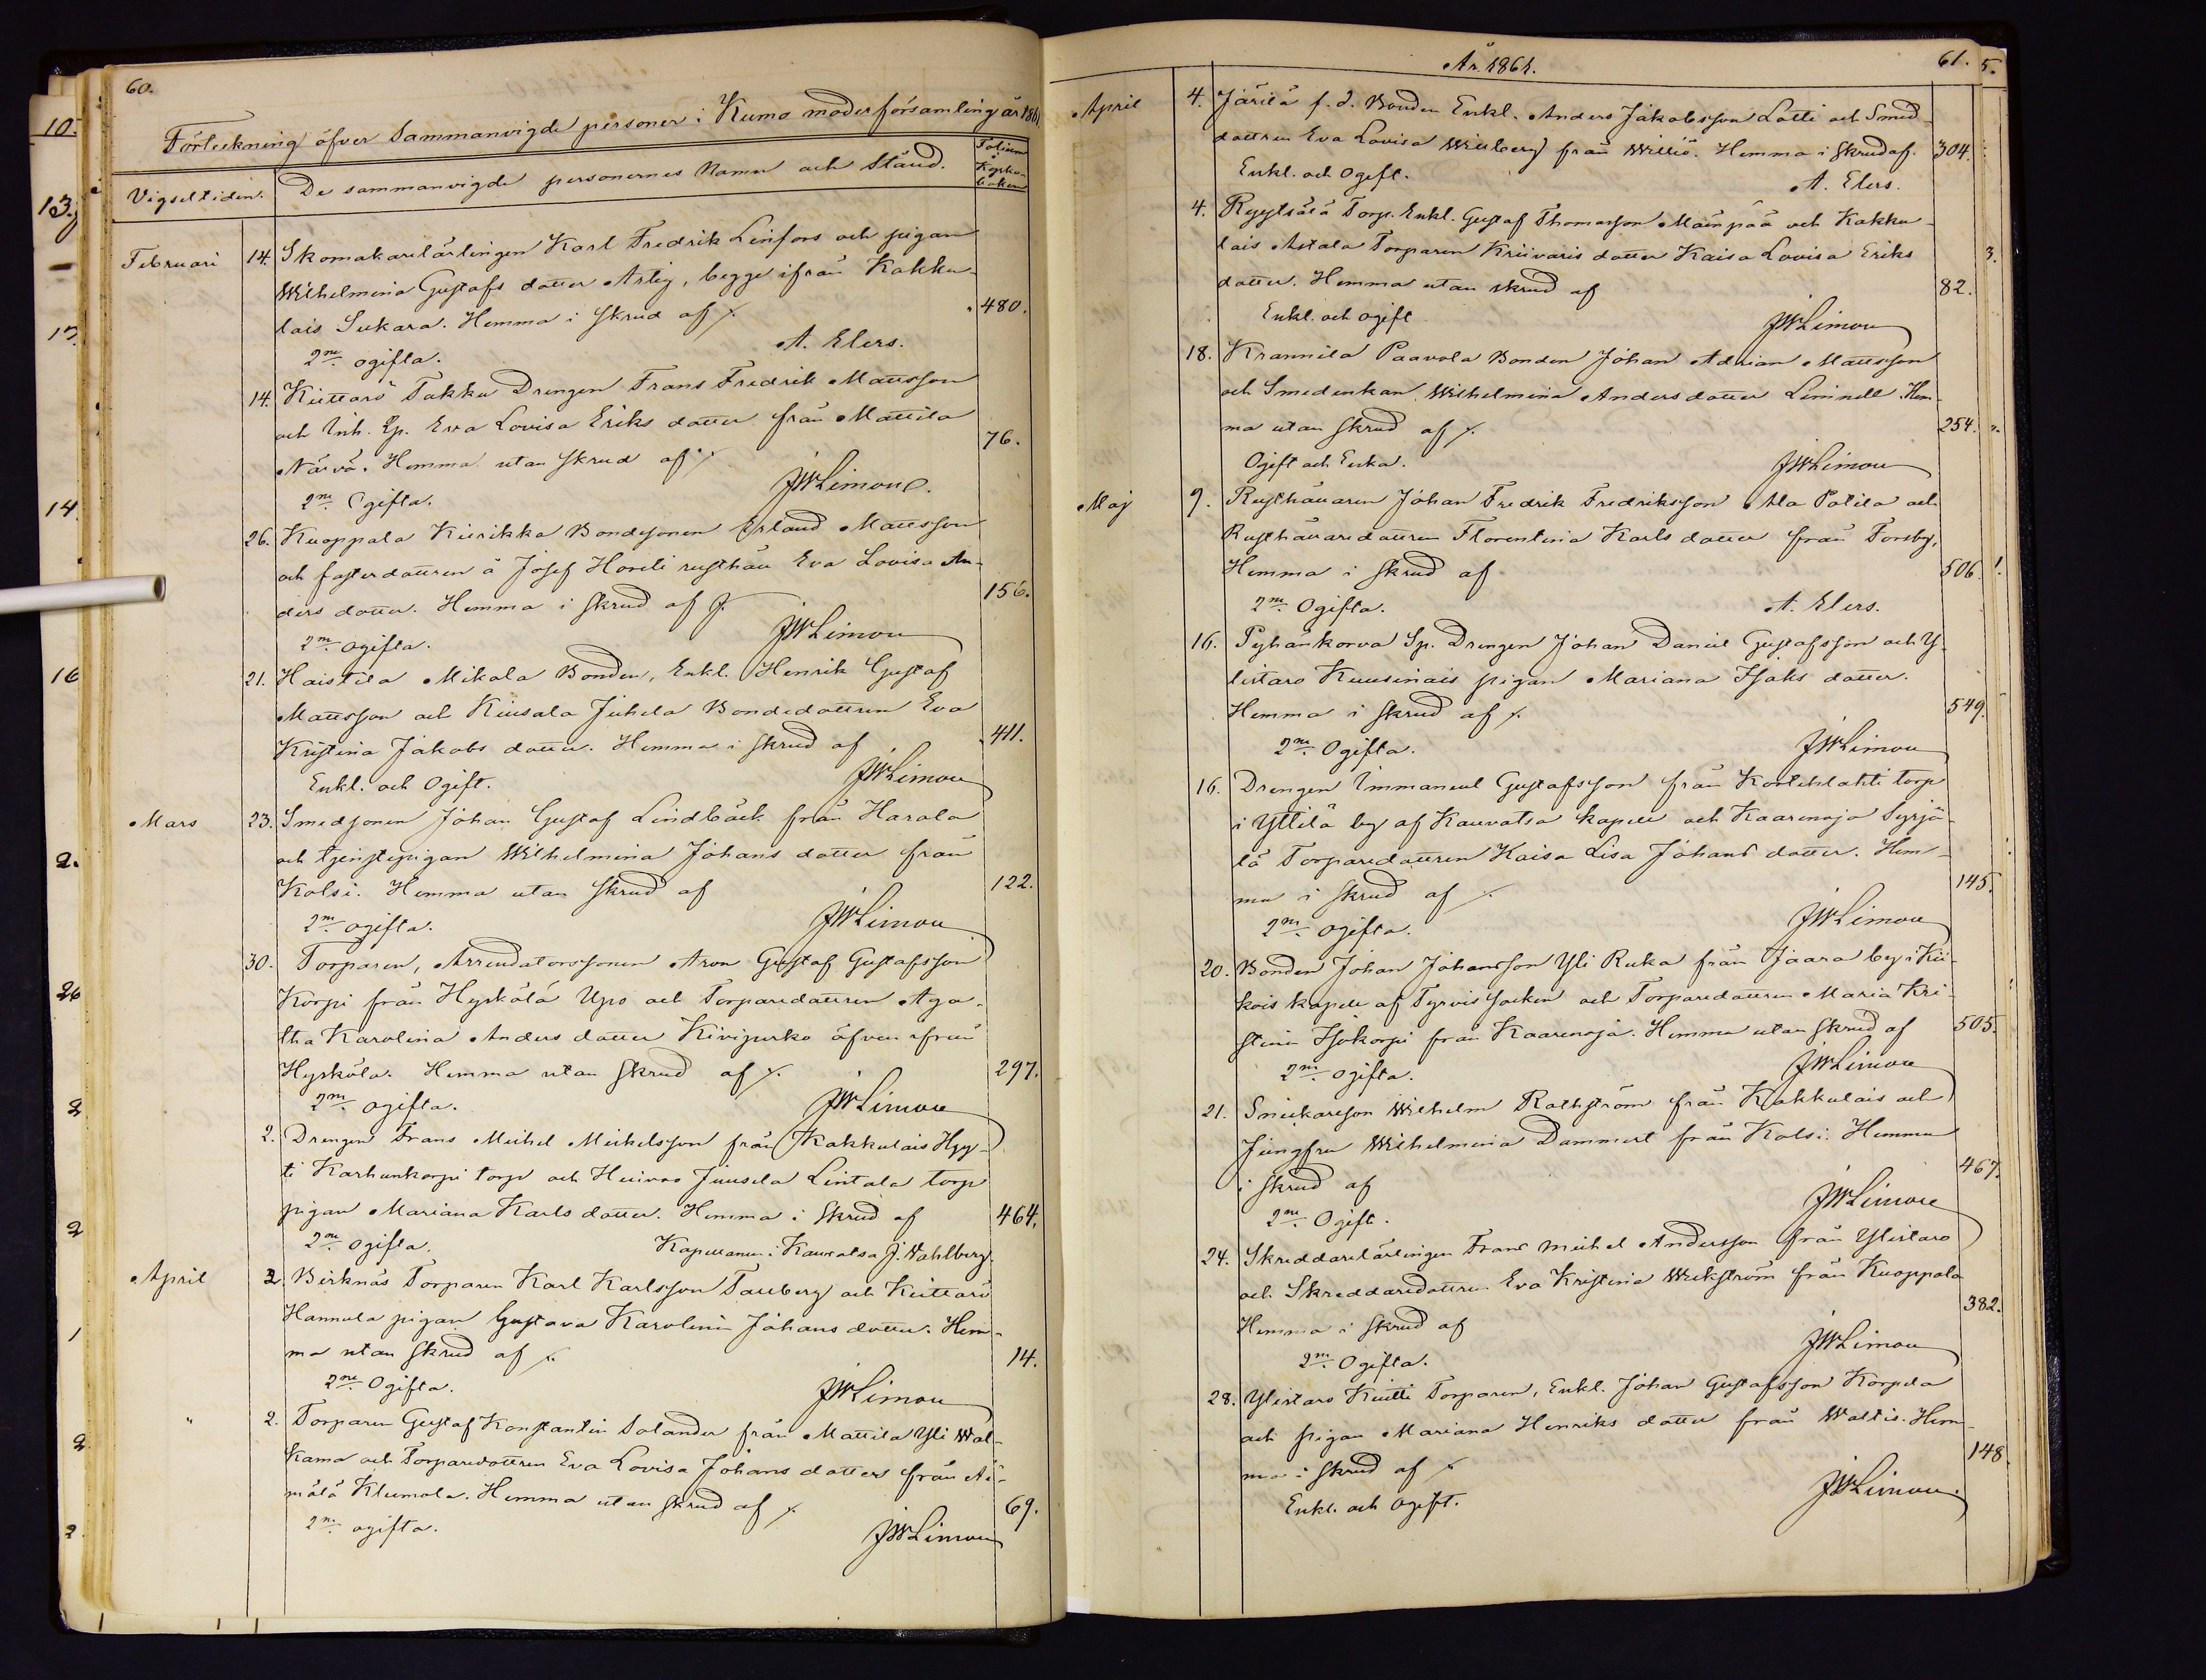 60.
Förteckning öfver Sammanvigde personer i Kumo moderförsamling år 1861.
Vigseltiden.
De sammanvigde personernes Namn och Stånd.
Folium
i
Kyrko-
boken
Februari
14. Skomakarelärlingen Karl Fredrik Linfors och pigan
Wilhelmina Gustafs dotter Artig, begge ifrån Kakku-
lais Sukara. Hemma i skrud af 480.
2ne ogifta. A. Elers.
14. Kiettarö Takku Drengen Frans Fredrik Mattsson
och Inh. Eva Lovisa Eriks dotter från Mattila
Närvä. Hemma utan skrud af 76.
2ne Ogifta. JWLimon.
26. Kuoppala Kiirikka Bondsonen Erland Mattsson
och fosterdottren å Josef Horeli rusthåll Eva Lovisa An-
ders dotter. Hemma i skrud af 156.
2ne ogifta. JWLimon
21. Haistila Mikola Bonden, Enkl. Henrik Gustaf
Mattsson och Kiusala Juhela Bondedottren Eva
Kristina Jakobs dotter. Hemma i skrud af 411.
Enkl. och Ogift. JWLimon
Mars
23. Smedsonen Johan Gustaf Lindbäck från Harola
och tjenstepigan Wilhelmina Johans dotter från
Kolsi. Hemma utan skrud af 122.
2ne ogifta. JWLimon
30. Torparen, Arrendatorssonen Aron Gustaf Gustafsson
Korpi från Hyrkölä Upo och Torparedottren Aga-
tha Karolina Anders dotter Kivipurko äfven ifrån
Hyrkölä. Hemma utan skrud af 297.
2ne ogifta. JWLimon
2. Drengen Frans Michel Michelsson från Kakkulais Hyy-
ti Karhunkorpi torp och Huivoo Juusela Lintala torp
pigan Mariana Karls dotter. Hemma i skrud af 464.
2ne ogifta. Kapellanen i Kauvatsa J. Wahlberg.
April
2. Birknäs Torparen Karl Karlsson Tallberg och Kiettarö
Hannula pigan Gustava Karolina Johans dotter. Hem-
ma utan skrud af 14.
2ne Ogifta. JWLimon
"
2. Torparen Gustaf Konstantin Solander från Mattila Yli Wal-
kama och Torparedottren Eva Lovisa Johans dotters från Äi-
mälä Klemola. Hemma utan skrud af 69.
2ne ogifta. JWLimon
År 1861.
61.
April
4. Järilä f. d. Bonden Enkl. Anders Jakobsson Lotti och Smed-
dottren Eva Lovisa Willberg från Williö. Hemma i skrud af 304.
Enkl. och Ogift. A. Elers.
4. Ryytsälä Torp. Enkl. Gustaf Thomasson Mäinpää och Kakku-
lais Astala Torparen Kriivaris dotter Kaisa Lovisa Eriks
dotter. Hemma utan skrud af 82.
Enkl. och ogift JWLimon
18. Krannila Paavola Bonden Johan Adrian Mattsson
och Smedenkan Wilhelmina Anders dotter Liminell. Hem-
ma utan skrud af 254.
Ogift och Enka. JWLimon
Maj
9. Rusthållaren Johan Fredrik Fredriksson Ala Potila och
Rusthållaredottren Florentina Karls dotter från Forsby,
Hemma i skrud af 506
2ne Ogifta. A. Elers.
16. Pyhänkorva Sp. Drengen Johan Daniel Gustafsson och Y-
listaro Kuusinais pigan Mariana Isaks dotter.
Hemma i skrud af 549.
2ne Ogifta. JWLimon
16. Drengen Immanuel Gustafsson från Kortehlahti torp
i Yttilä by af Kauvatsa kapell och Kaarenoja Syrjä-
lä Torparedottren Kaisa Lisa Johans dotter. Hem-
ma i skrud af 145.
2ne ogifta. JWLimon
20. Bonden Johan Johansson Yli Ruka från Jaara by i Kii-
kois kapell af Tyrvis socken och Torparedottren Maria Kri-
stina Isokorpi från Kaarenoja. Hemma utan skrud af 505.
2ne ogifta. JWLimon
21. Snickaresson Wilhelm Rothström från Kakkulais och
Jungfru Wilhelmina Dammert från Kolsi. Hemma
i skrud af 467.
2ne Ogift. JWLimon
24. Skreddarelärlingen Frans Michel Andersson från Ylistaro
och Skreddaredottren Eva Kristina Wekström från Kuoppala
Hemma i skrud af 382.
2ne Ogifta. JWLimon
28. Ylistaro Knutti Torparen, Enkl. Johan Gustafsson Korpela
och pigan Mariana Henriks dotter från Waltis. Hem-
ma i skrud af 148.
Enkl. och ogift. JWLimon.